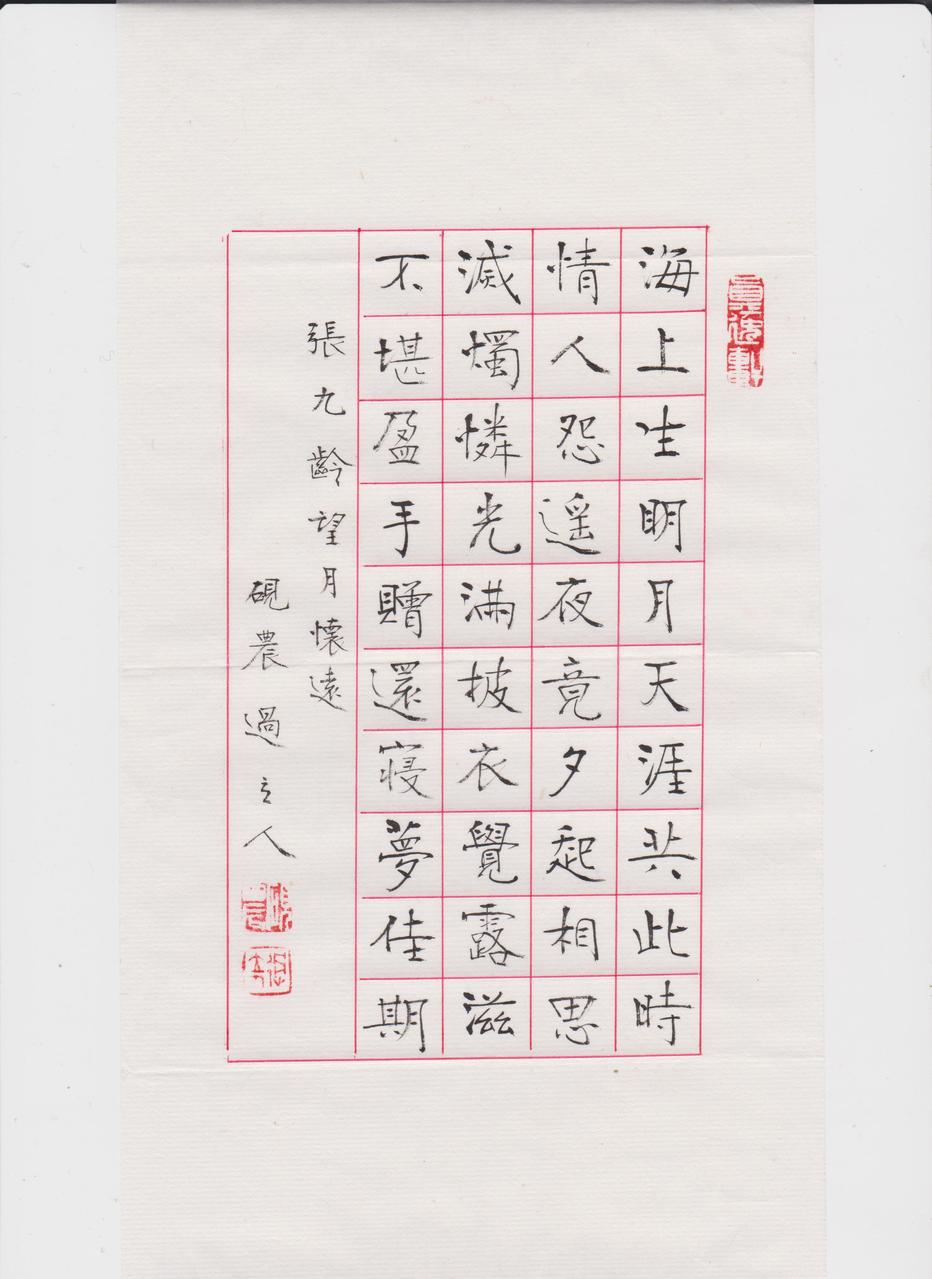 海上生明月天涯共此時
情人怨遥夜竟夕起相思
滅燭憐光滿披衣覺露滋
不堪盈手贈還寝夢佳期
張九齡望月懷遠
硯農過立人